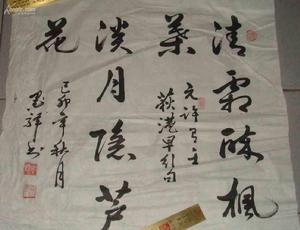 清霜醉枫
叶
淡月隐芦
花
元许有壬
荻港早行句
己卯年秋月